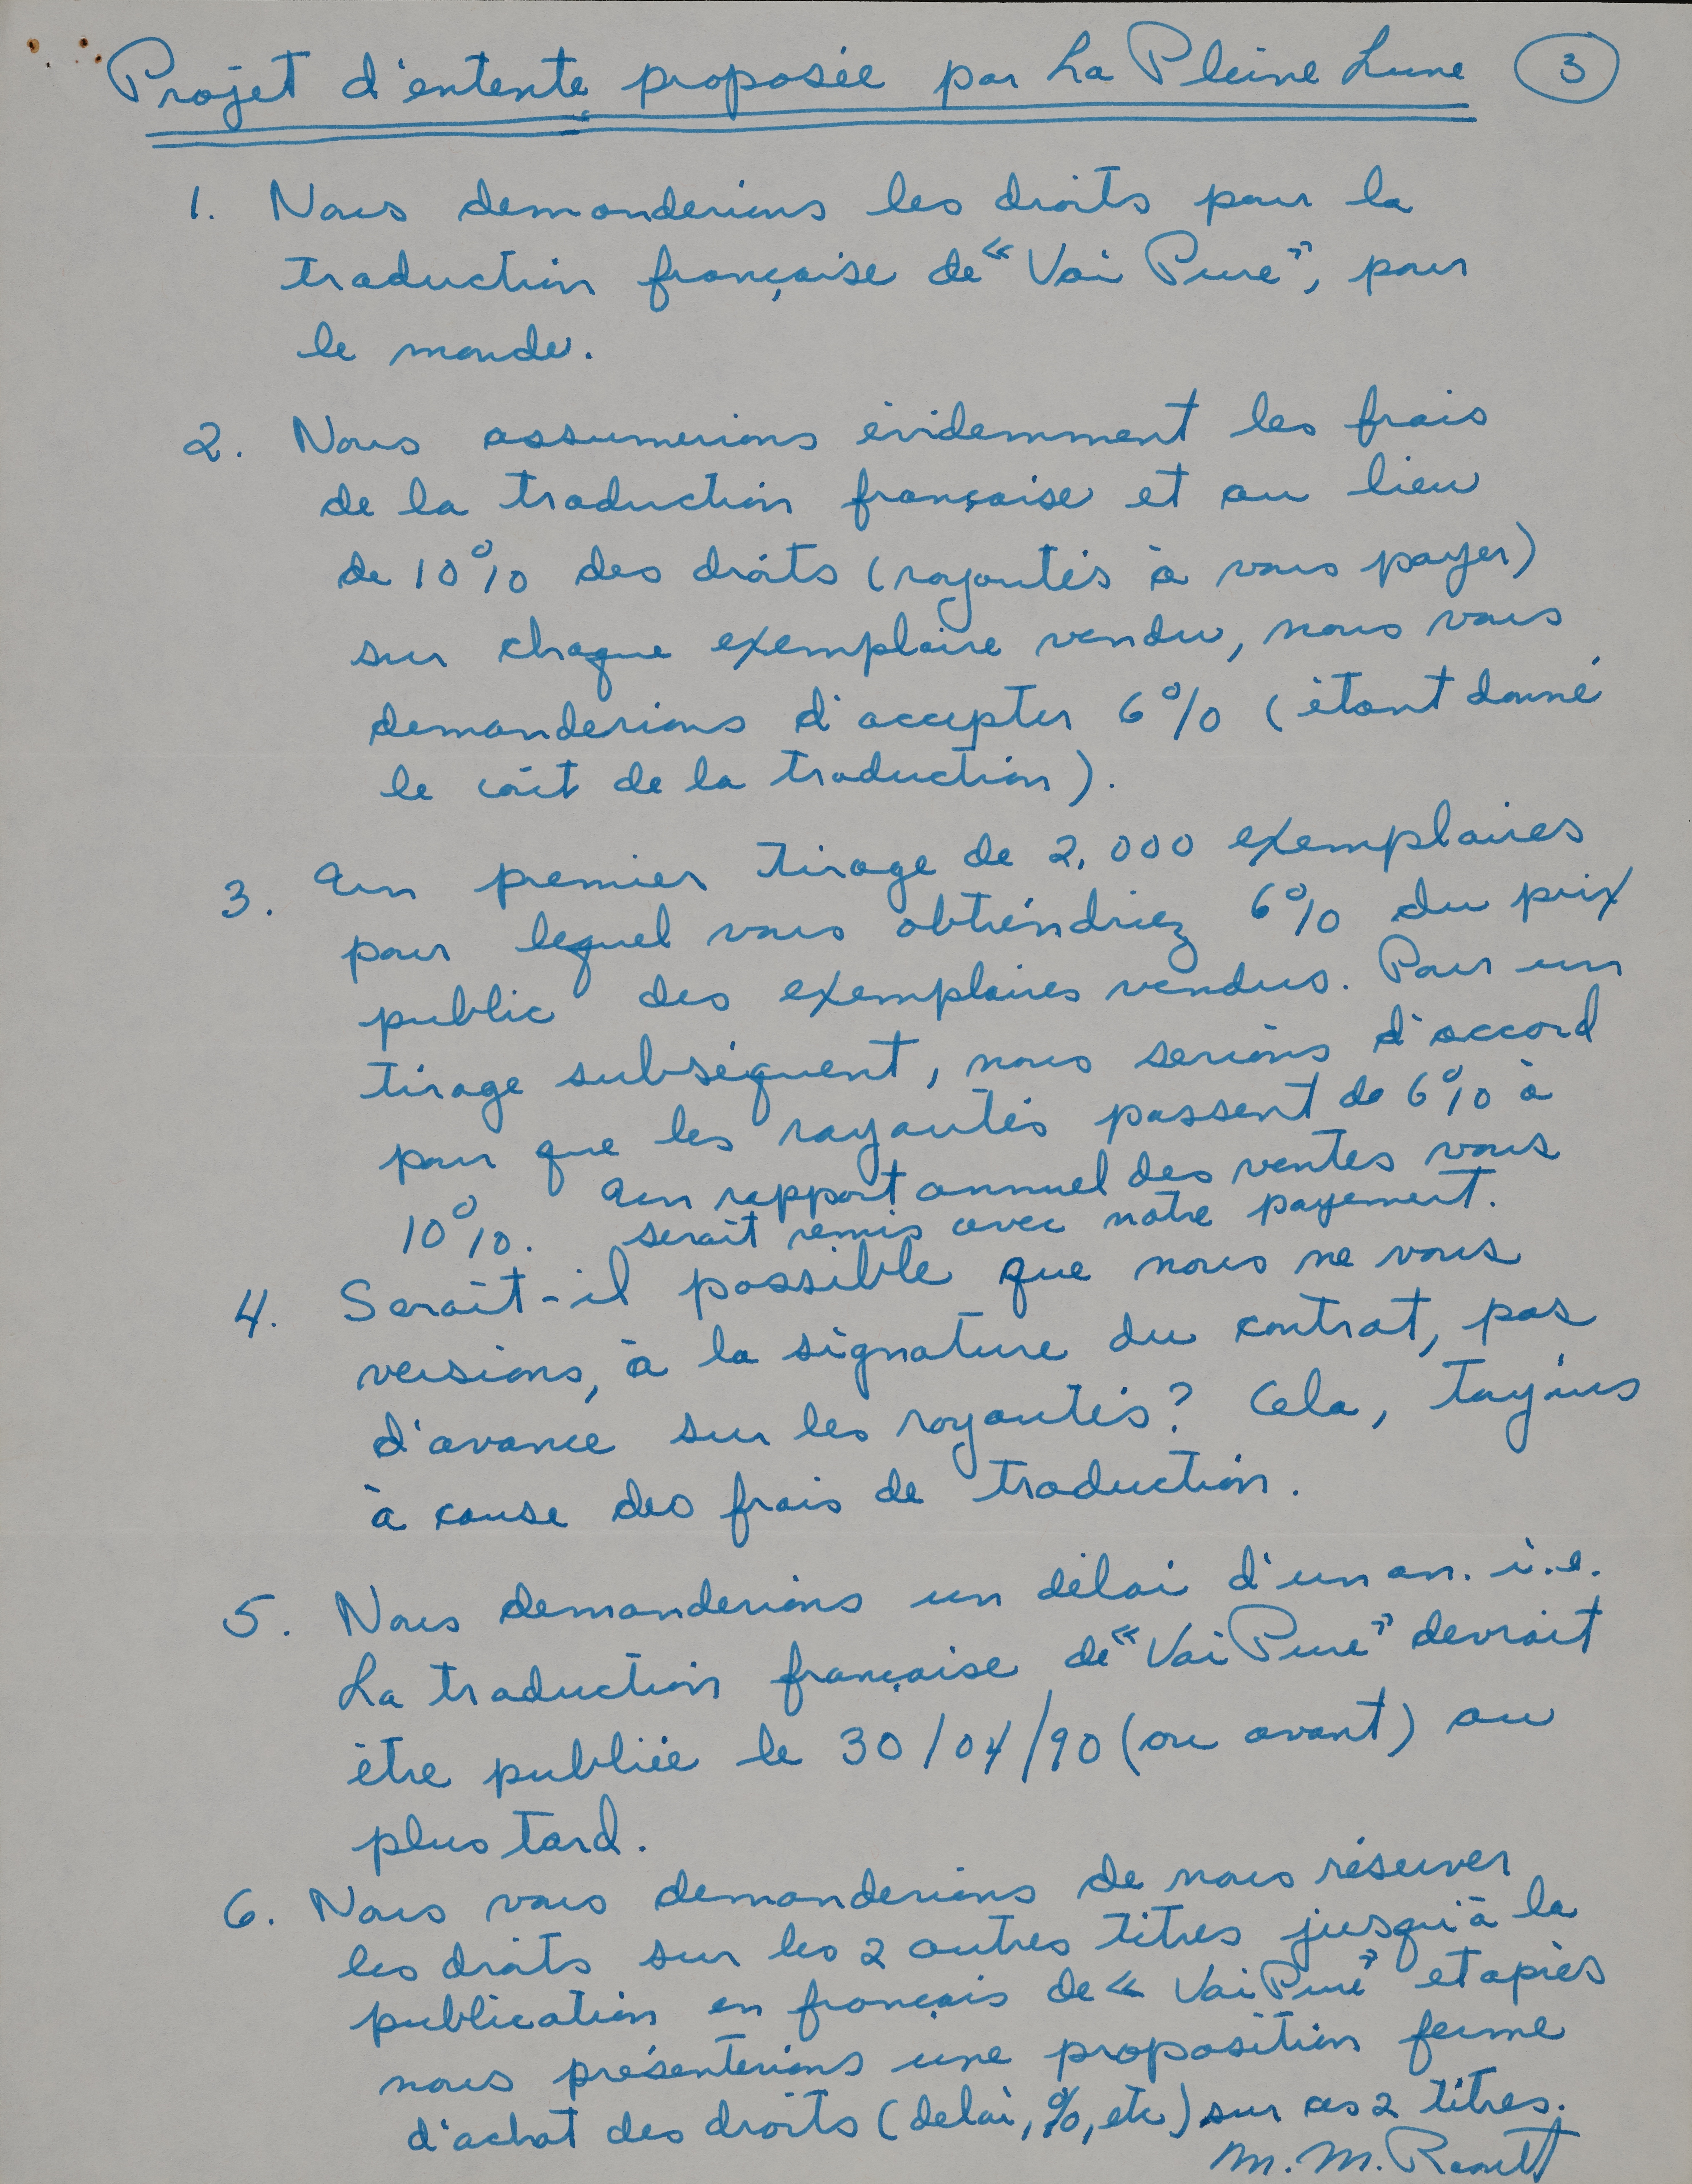 Projet d'entente proposée par La Pleine Lune 3
1. Nous demanderions les droits pour la
traduction française de « Vai Pure », pour
le monde.
2. Nous assumerions évidemment les frais
de la traduction française et au lieu
de 10% des droits (royautés à vous payer)
sur chaque exemplaire vendu, nous vous
demanderions d'accepter 6% (étant donné
le coût de la traduction).
3. Un premier tirage de 2.000 exemplaires
pour lequel vous obtiendriez 6% du prix
public des exemplaires vendus. Pour un
tirage subséquent, nous serions d'accord
pour que les royautés passent de 6% à
10%. Un rapport annuel des ventes vous
serait remis avec notre payement.
4. Serait-il possible que nous ne vous
versions, à la signature du contrat, pas
d'avance sur les royautés? Cela, toujours
à cause des frais de traduction.
5. Nous demanderions un délai d'un an. i.e.
La traduction française de « Vai Pure » devrait
être publiée le 30/04/90 (ou avant) au
plus tard.
6. Nous vous demanderions de nous réserver
les droits sur les 2 autres titres jusqu'à la
publication en français de « Vai Pure » et après
nous présenterions une proposition ferme
d'achat des droits (délai, %, etc) sur ces 2 titres.
M. M.